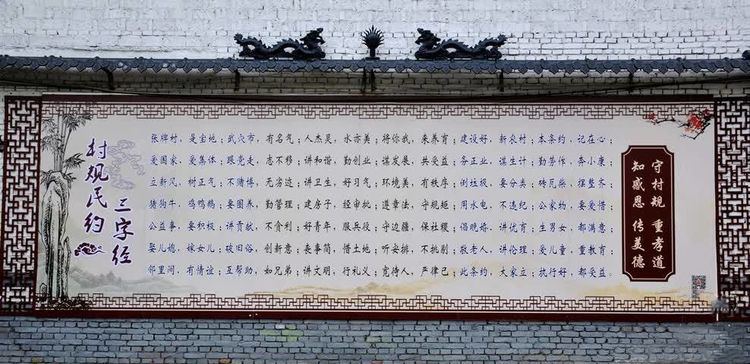 村规民约
三字经
张牌村，是宝地；武穴市，有名气；人杰灵，水亦美；将你我，来养育；建设好，新农村；本条约，记在心；
爱国家，爱集体；跟党走，志不移；讲和谐，勤创业；谋发展，共受益；务正业，谋生计；勤劳作，奔小康；
立新风，树正气；不赌博，无涝边；讲卫生，好习气；环境美，有秩序；倒垃圾，要分类；砖瓦柴，摆整齐；
猪狗牛，鸡鸭鹅；要圈养，勤管理；建房子，经审批；遵章法，守规矩；用水电，不违纪；公家物，要爱惜；
公益事，要积极；讲贡献，不贪利；好青年，服兵役；守边疆，保社稷；倡晚婚，讲优育；生男女，都满意；
娶儿媳，嫁女儿；破旧俗，创新意；丧事简，惜土地；听安排，不挑剔；敬老人，讲伦理；爱儿童，重教育；
邻里间，有情谊；互帮助，如兄弟；讲文明，行礼义；宽待人，严律己；此条约，大家立；执行好，都受益。
守村规 重孝道
知感恩 传美德